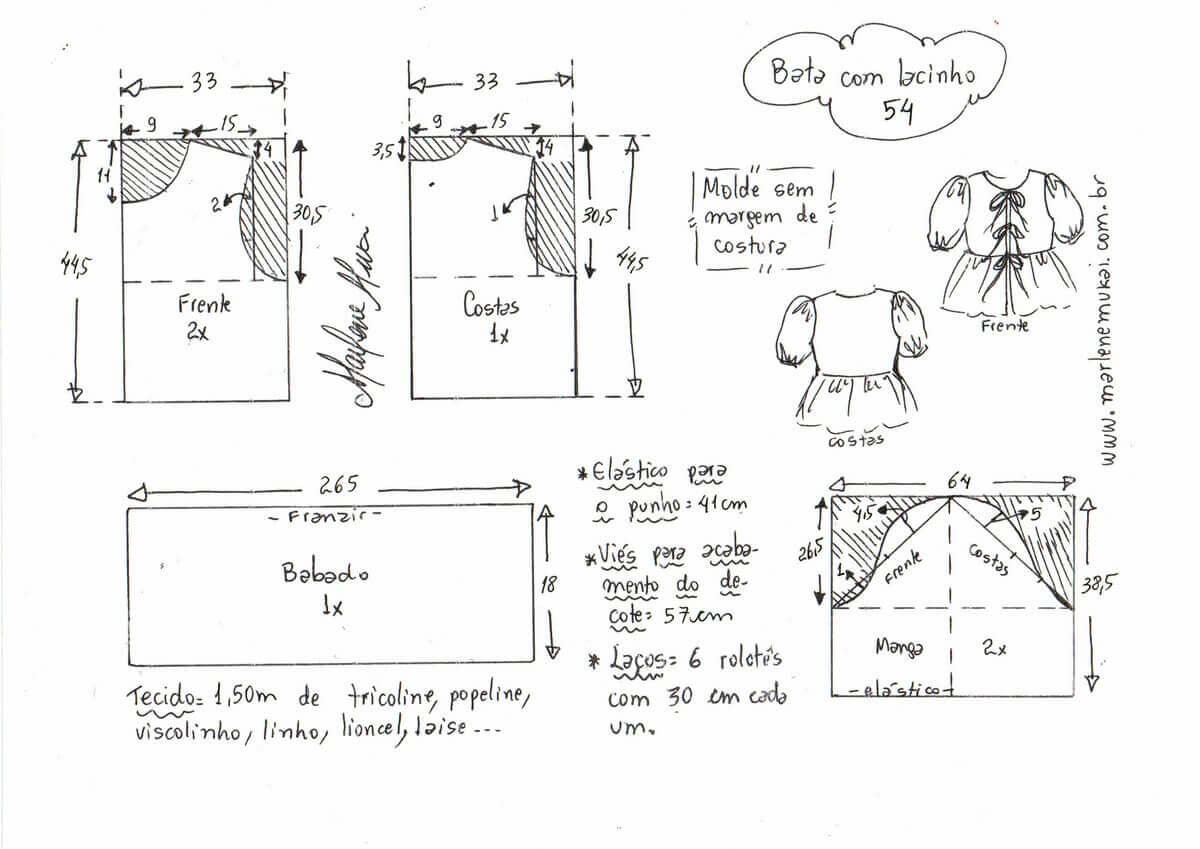 Bata com lacinho
54
33
9
15
4
11
2
30,5
44,5
Frente
2x
33
9
15
4
3,5
1
30,5
44,5
Costas
1x
Marlene Mukai
Molde sem
margem de
costura
Frente
Costas
www.marlenemukai.com.br
265
- Franzir -
Babado
1x
18
Tecido= 1,50m de tricoline, popeline,
viscolinho, linho, lioncel, laise ---
* Elástico para
o punho = 41cm
* Viés para acaba-
mento do de-
cote= 57cm
* Laços= 6 rolotês
com 30 cm cada
um.
64
4,5
5
26,5
1
Frente
Costas
38,5
Manga
2x
- elástico -